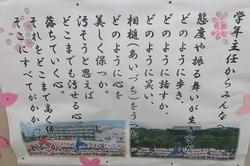 学年主任からみんなへ
態度や振る舞いが生
どのように歩き、
どのように話すか、
どのように笑い、
相槌(あいづち)をうつ
どのように心を
美しく保つか。
汚そうと思えば
どこまでも汚せる心
落ちていく心。
どこまでも高く保
それ
そこにすべてがかか